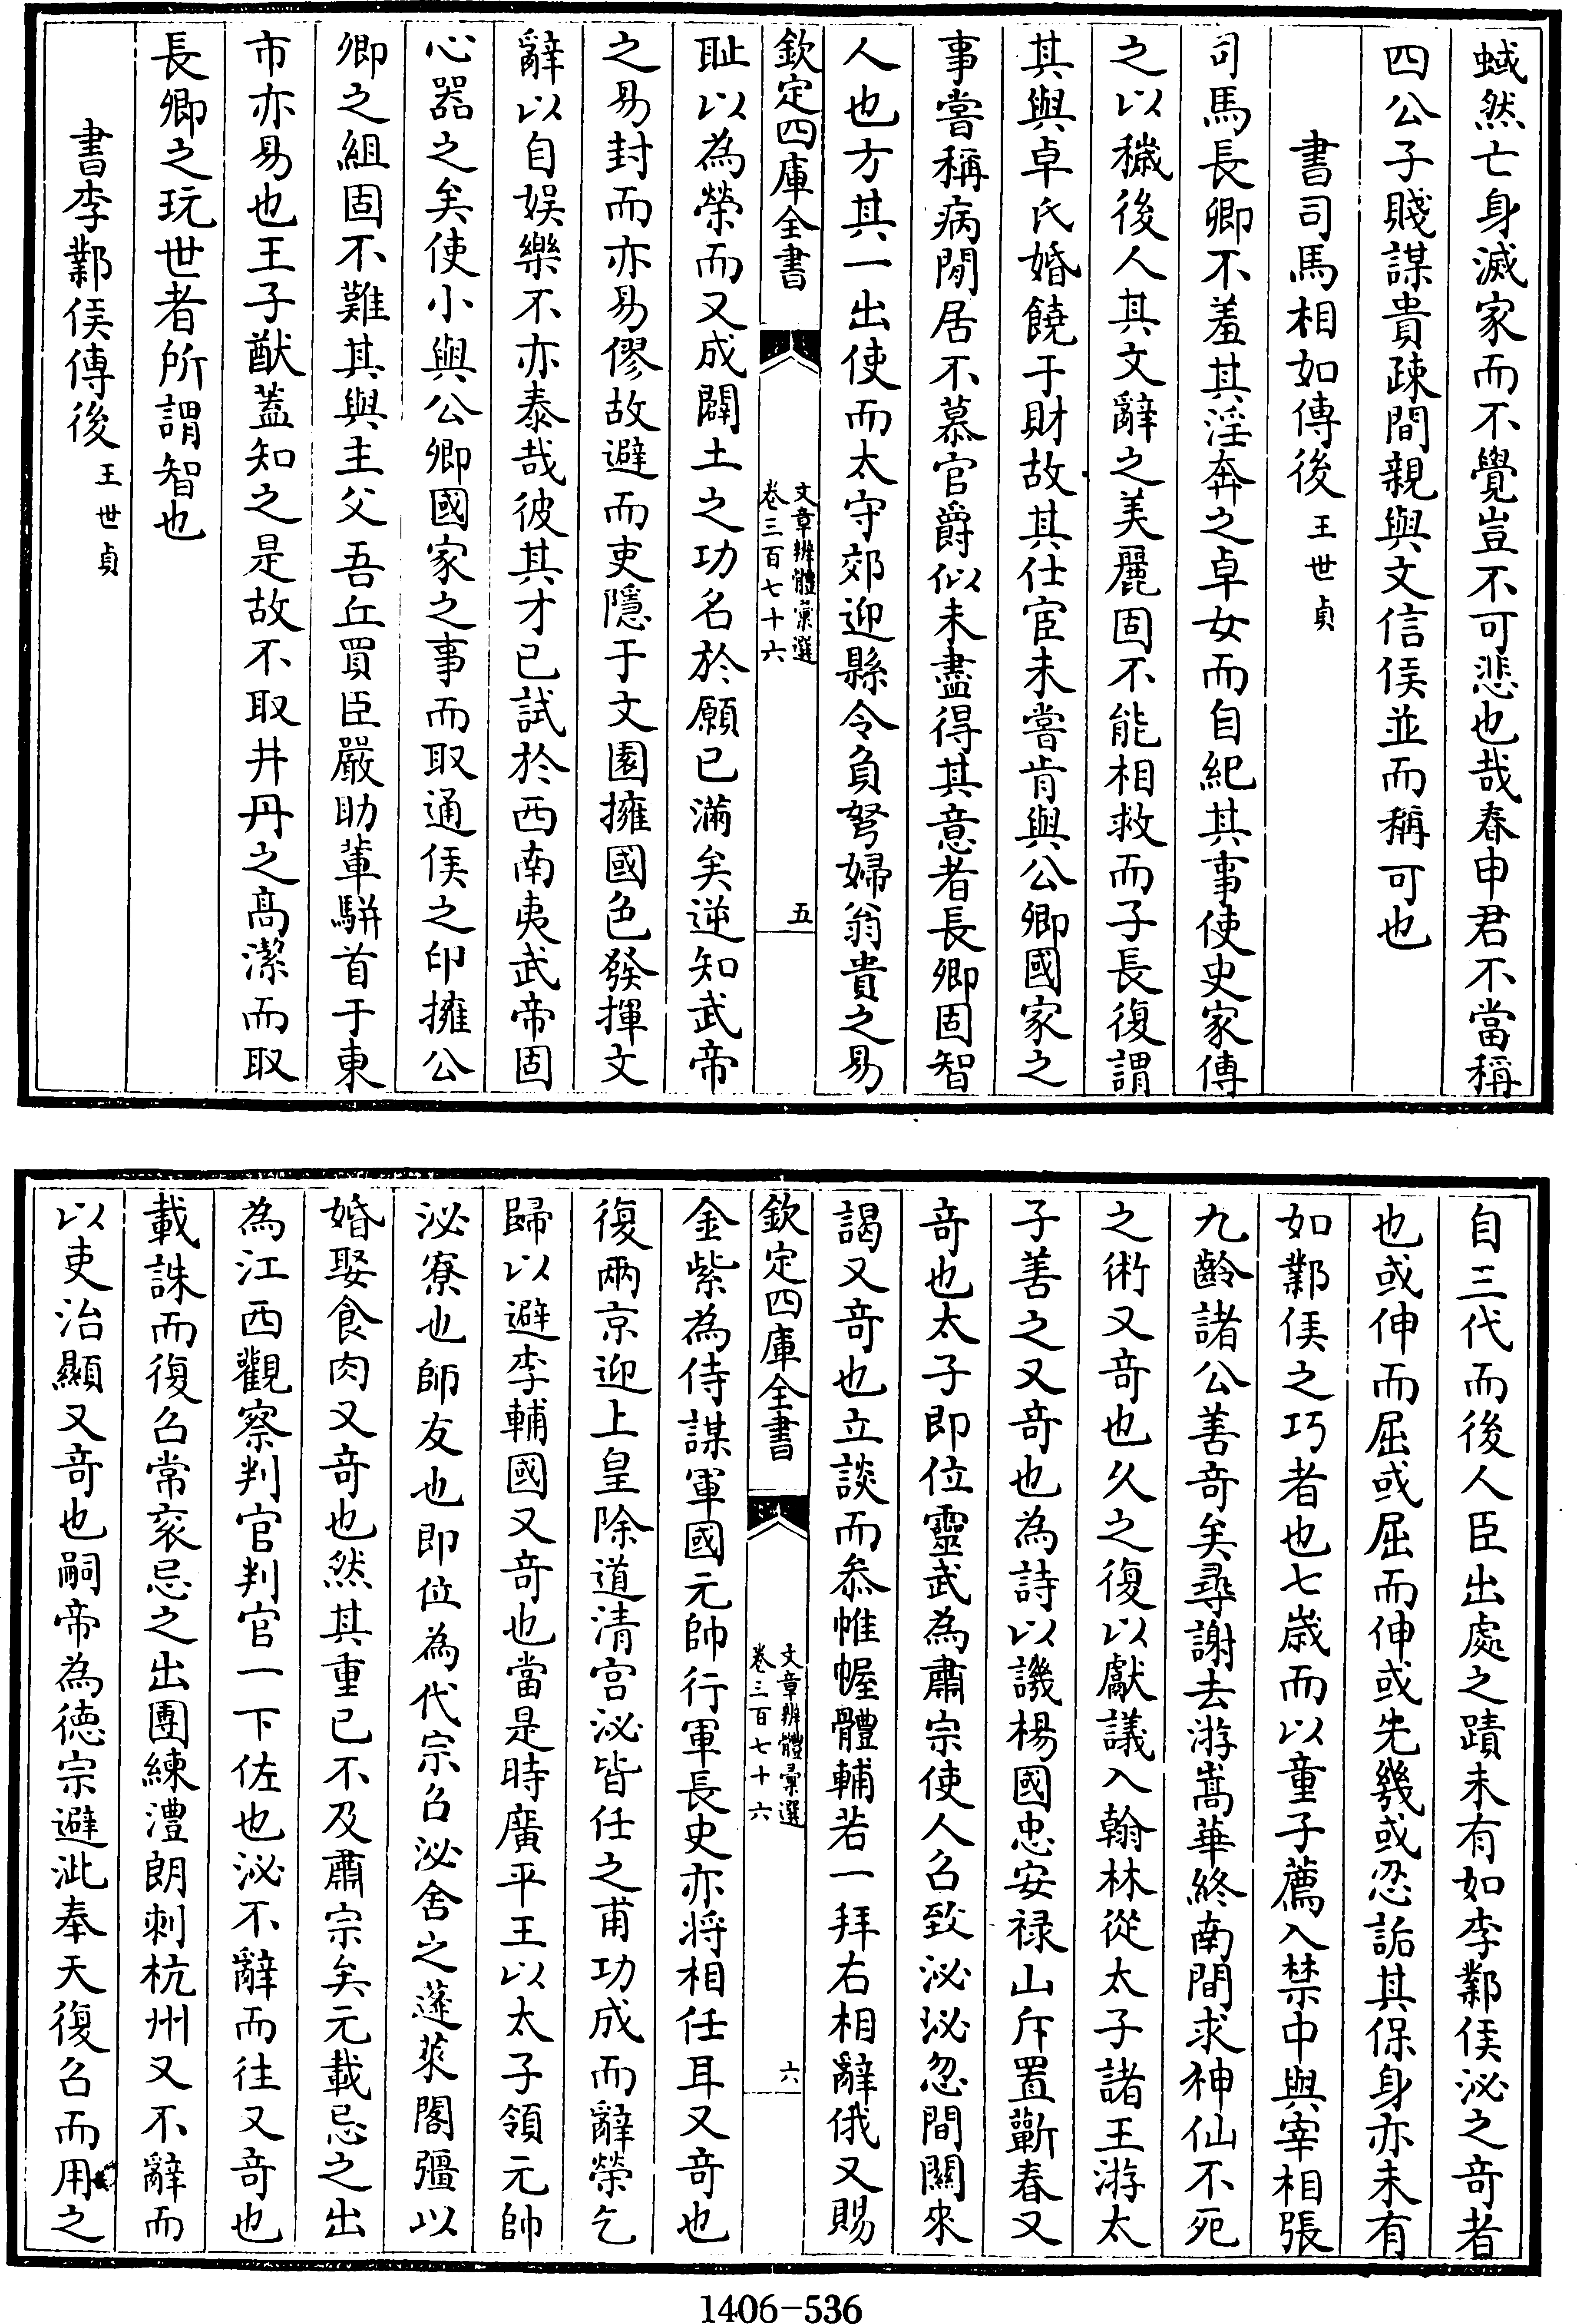 蜮然亡身滅家而不覺豈不可悲也哉春申君不當稱
四公子賤謀貴疎間親與文信侯並而稱可也
書司馬相如傳後王世貞
司馬長卿不羞其淫奔之卓女而自紀其事使史家傳
之以穢後人其文辭之美麗固不能相救而子長復謂
其與卓氏婚饒于財故其仕宦未嘗肯與公卿國家之
事嘗稱病閒居不慕官爵似未盡得其意者長卿固智
人也方其一出使而太守郊迎縣令負弩婦翁貴之易
欽定四庫全書
文章辨體彙選
卷三百七十六
五
耻以為榮而又成闢土之功名於願已滿矣逆知武帝
之易封而亦易僇故避而吏隱于文園擁國色發揮文
辭以自娛樂不亦泰哉彼其才已試於西南夷武帝固
心器之矣使小與公卿國家之事而取通侯之印擁公
卿之組固不難其與主父吾丘買臣嚴助輩駢首于東
市亦易也王子猷蓋知之是故不取井丹之高潔而取
長卿之玩世者所謂智也
書李鄴侯傳後王世貞
自三代而後人臣出處之蹟未有如李鄴侯泌之奇者
也或伸而屈或屈而伸或先幾或忍詬其保身亦未有
如鄴侯之巧者也七歲而以童子薦入禁中與宰相張
九齡諸公善奇矣尋謝去游嵩華終南間求神仙不死
之術又奇也久之復以獻議入翰林從太子諸王游太
子善之又奇也為詩以譏楊國忠安禄山斥置蘄春又
奇也太子即位靈武為肅宗使人召致泌泌忽間關來
謁又奇也立談而叅帷幄體輔若一拜右相辭俄又賜
欽定四庫全書
文章辨體彙選
卷三百七十六
六
金紫為侍謀軍國元帥行軍長史亦将相任耳又奇也
復兩京迎上皇除道清宫泌皆任之甫功成而辭榮乞
歸以避李輔國又奇也當是時廣平王以太子領元帥
泌寮也師友也即位為代宗召泌舍之蓬萊閣彊以
婚娶食肉又奇也然其重已不及肅宗矣元載忌之出
為江西觀察判官判官一下佐也泌不辭而往又奇也
載誅而復召常衮忌之出團練澧朗刺杭州又不辭而
以吏治顯又奇也嗣帝為德宗避泚奉天復召而用之
1406-536